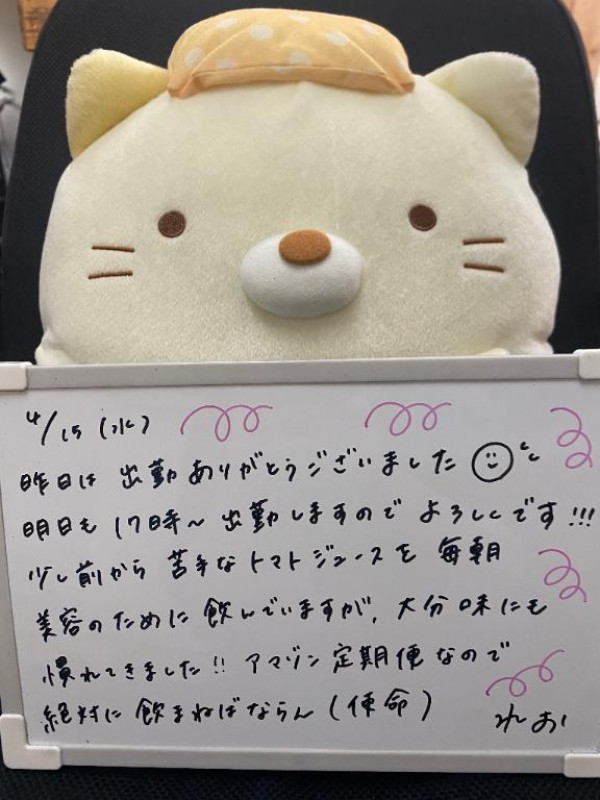 4/15(水)
昨日は 出勤ありがとうございました
明日も 17時〜 出勤しますので よろしくです!!!
少し前から 苦手なトマトジュースを 毎朝
美容のために 飲んでいますが、大分味にも
慣れてきました!! アマゾン定期便なので
絶対に 飲まねばならん(使命)
れお